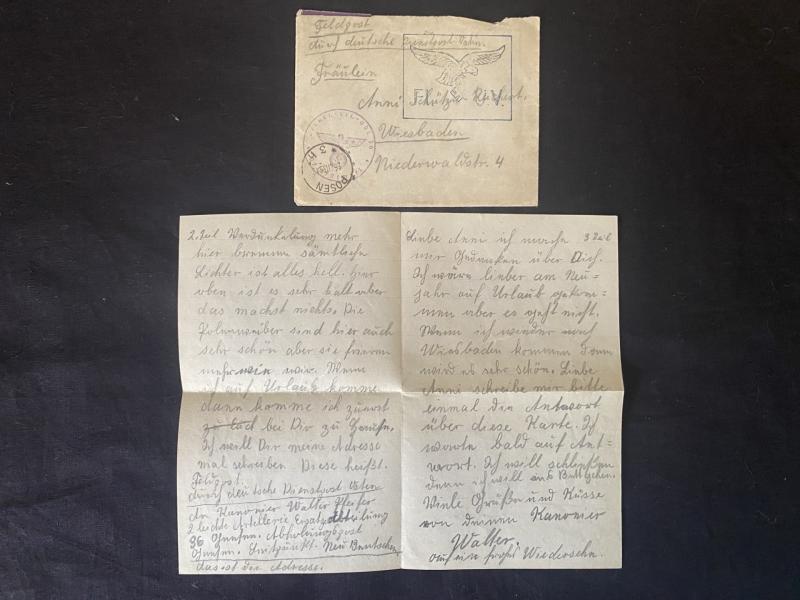 Feldpost
durch deutsche Dienstpost Osten.
Fräulein
Anni Schütze
Wiesbaden
Niederwaldstr. 4
POSEN
2. Teil Verdunkelung mehr
hier brennen sämtliche
Lichter ist alles hell. Hier
oben ist es sehr kalt aber
das macht nichts. Die
Polenweiber sind hier auch
sehr schön aber sie frieren
mehr wie wir. Wenn
ich auf Urlaub komme
dann komme ich zuerst
bei Dir zu
Ich will Dir meine Adresse
mal schreiben Diese heißt.
Feldpost.
durch deutsche Dienstpost Osten
An Kanonier Walter Pfeifer
2 leichte Artellerie Ersatzabteilung
36 Gnesen. Abholungspost
Gnesen. Leitpunkt. Neu Bentschen
das ist die Adresse.
Liebe Anni ich mache 3 Teil
mir Gedanken über Dich.
Ich wäre lieber am Neu-
jahr auf Urlaub gekom-
men aber es geht nicht.
Wenn ich wieder nach
Wiesbaden kommen dann
wird es sehr schön. Liebe
Anni schreibe mir bitte
einmal die Antwort
über diese Karte. Ich
warte bald auf Ant-
wort. Ich will schließen
denn ich will ins Bettchen.
Viele Grüße und Küsse
von deinen Kanonier
Walter.
auf ein frohes Wiedersehn.